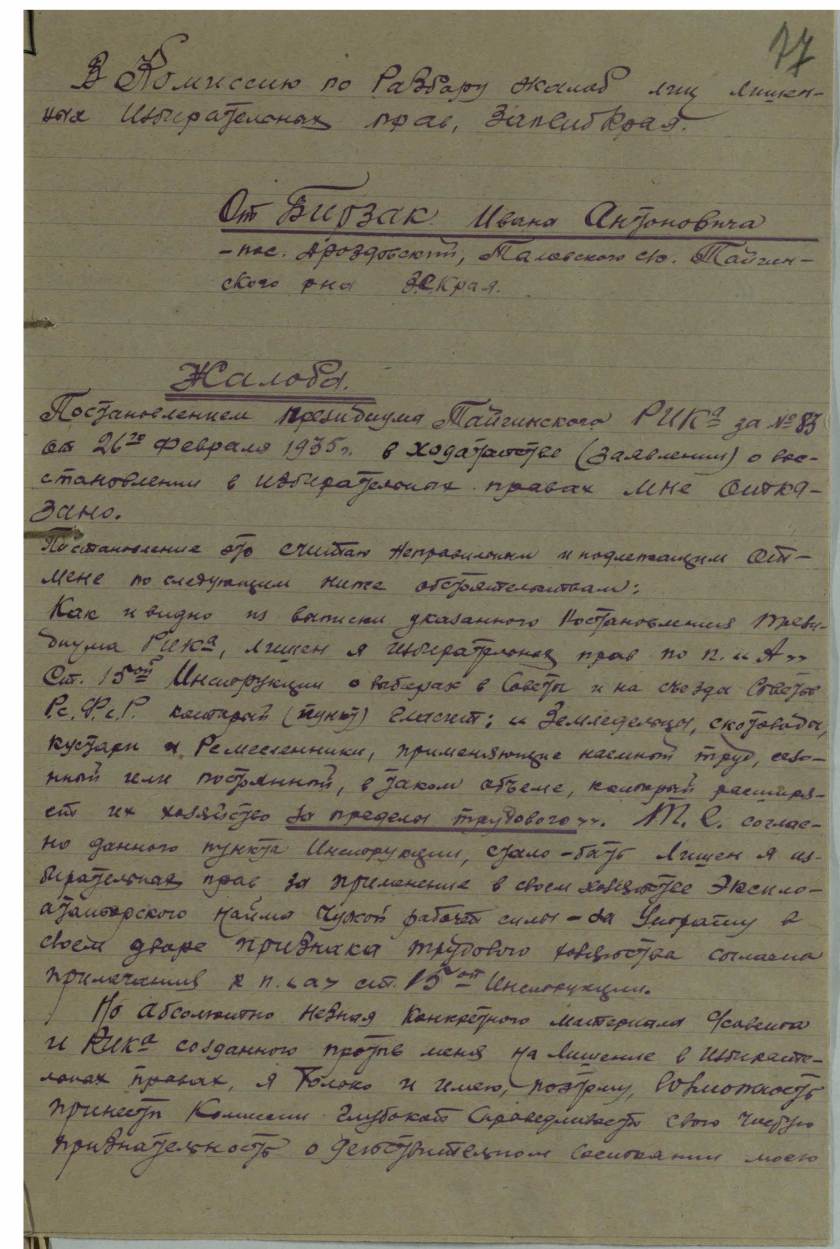 77
В Комиссию по Разбору жалоб лиц лишен-
ных Избирательных прав, ЗапСибКрая.
От Бирзак Ивана Антоновича
- пос. Дроздовский, Таловского с/с. Тайгин-
ского рна ЗСКрая.
Жалоба.
Постановлением президиума Тайгинского РИКа за № 83
от 26го февраля 1935г. в ходатайстве (заявлении) о вос-
становлении в избирательных правах мне отка-
зано.
Постановление это считаю неправильным и подлежащим от-
мене по следующим ниже обстоятельствам:
Как и видно из выписки указанного постановления прези-
диума РИКа, лишен я избирательных прав по п. „А"
Ст. 15ой Инструкции о выборах в Советы и на съезды Советов
Р.С.Ф.С.Р. который (пункт) гласит: „Земледельцы, скотоводы,
кустари и Ремесленники, применяющие наемный труд, сезо-
нный или постоянный, в таком объеме, который расширя-
ет их хозяйство за пределы трудового". Т.е. соглас-
но данного пункта Инструкции, стало-быть лишен я из-
бирательных прав за применение в своем хозяйстве Эксплo-
ататорского найма чужой рабочей силы - за Утратил в
своем дворе признака трудового хозяйства согласно
примечания к п. „а" ст. 15ой Инструкции.
Но абсолютно незная конкретного материала с/совета
и РИКа созданного против меня на лишение в избирате-
льных правах, я только и имею, поэтому, возможность
принести Комиссии глубокой Справедливости свою чистую
признательность о действительном состоянии моего